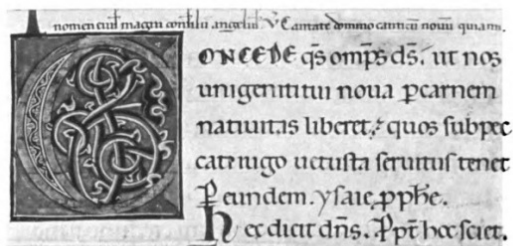 nomen eius̄ magni consilii angelus. V̄ Cantate domino canticū nouū quia mi.
CONCEDE q̄s omp̄s d̄s. ut nos
unigeniti tui noua p̱ carnem
natiuitas liberet. quos sub pec
cati iugo uetusta seruitus tenet
P̱ eundem. ysaie p̱phē.
Hec dicit d̄n̄s. P̱pt̄ hoc sciet.